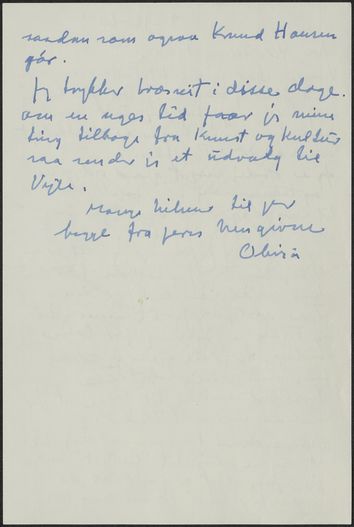 saadan som ogsaa Knud Hansen
gør.
Jeg trykker træsnit i disse dage.
om en uges tid faar jeg mine
ting tilbage fra Kunst og Kultur
saa sender jeg et udvalg til
Vejle.
Mange hilsner til jer
begge fra jeres hengivne
Olivia